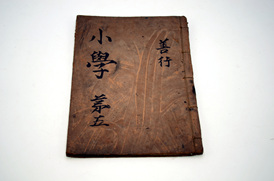 善行
小學 苐五